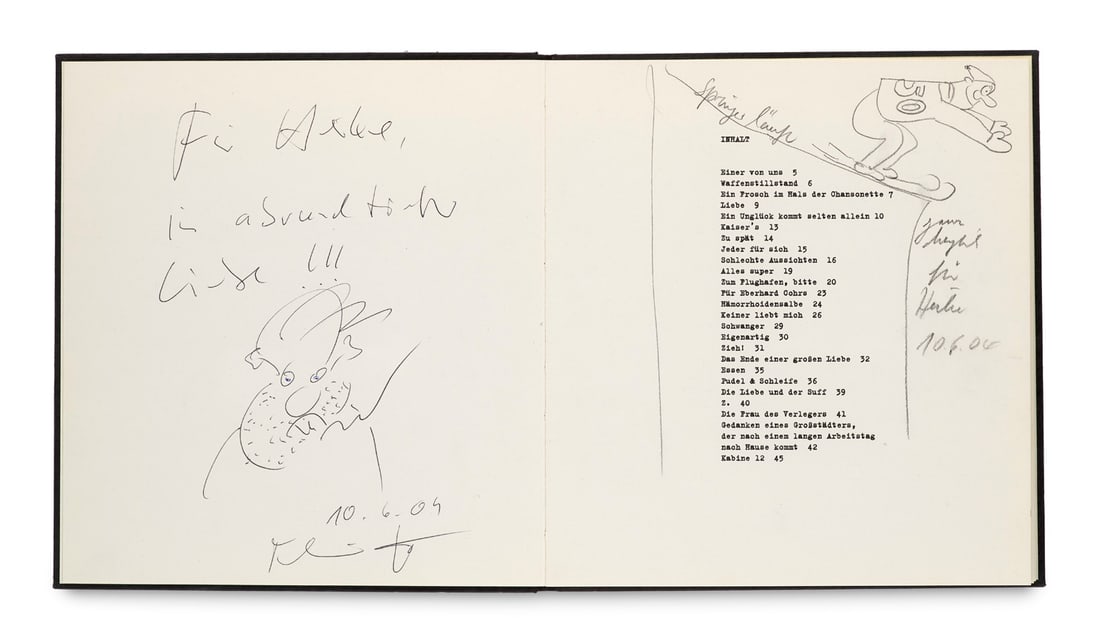 Für
in absurd
Liebe !!!
10.6.04
Springer läuft
INHALT
Einer von uns 5
Waffenstillstand 6
Ein Frosch im Hals der Chansonette 7
Liebe 9
Ein Unglück kommt selten allein 10
Kaiser's 13
Zu spät 14
Jeder für sich 15
Schlechte Aussichten 16
Alles super 19
Zum Flughafen, bitte 20
Für Eberhard Cohrs 23
Hämorrhoidensalbe 24
Keiner liebt mich 26
Schwanger 29
Eigenartig 30
Zieh! 31
Das Ende einer großen Liebe 32
Essen 35
Pudel & Schleife 36
Die Liebe und der Suff 39
Z. 40
Die Frau des Verlegers 41
Gedanken eines Großstädters,
der nach einem langen Arbeitstag
nach Hause kommt 42
Kabine 12 45
für
10.6.04